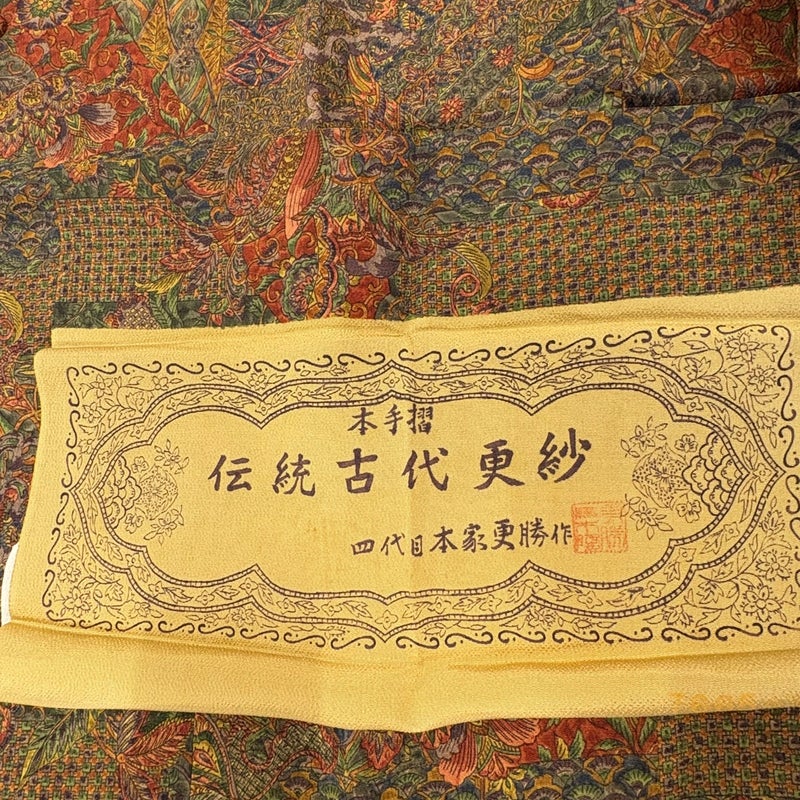 本手摺
伝統古代更紗
四代目本家更勝作